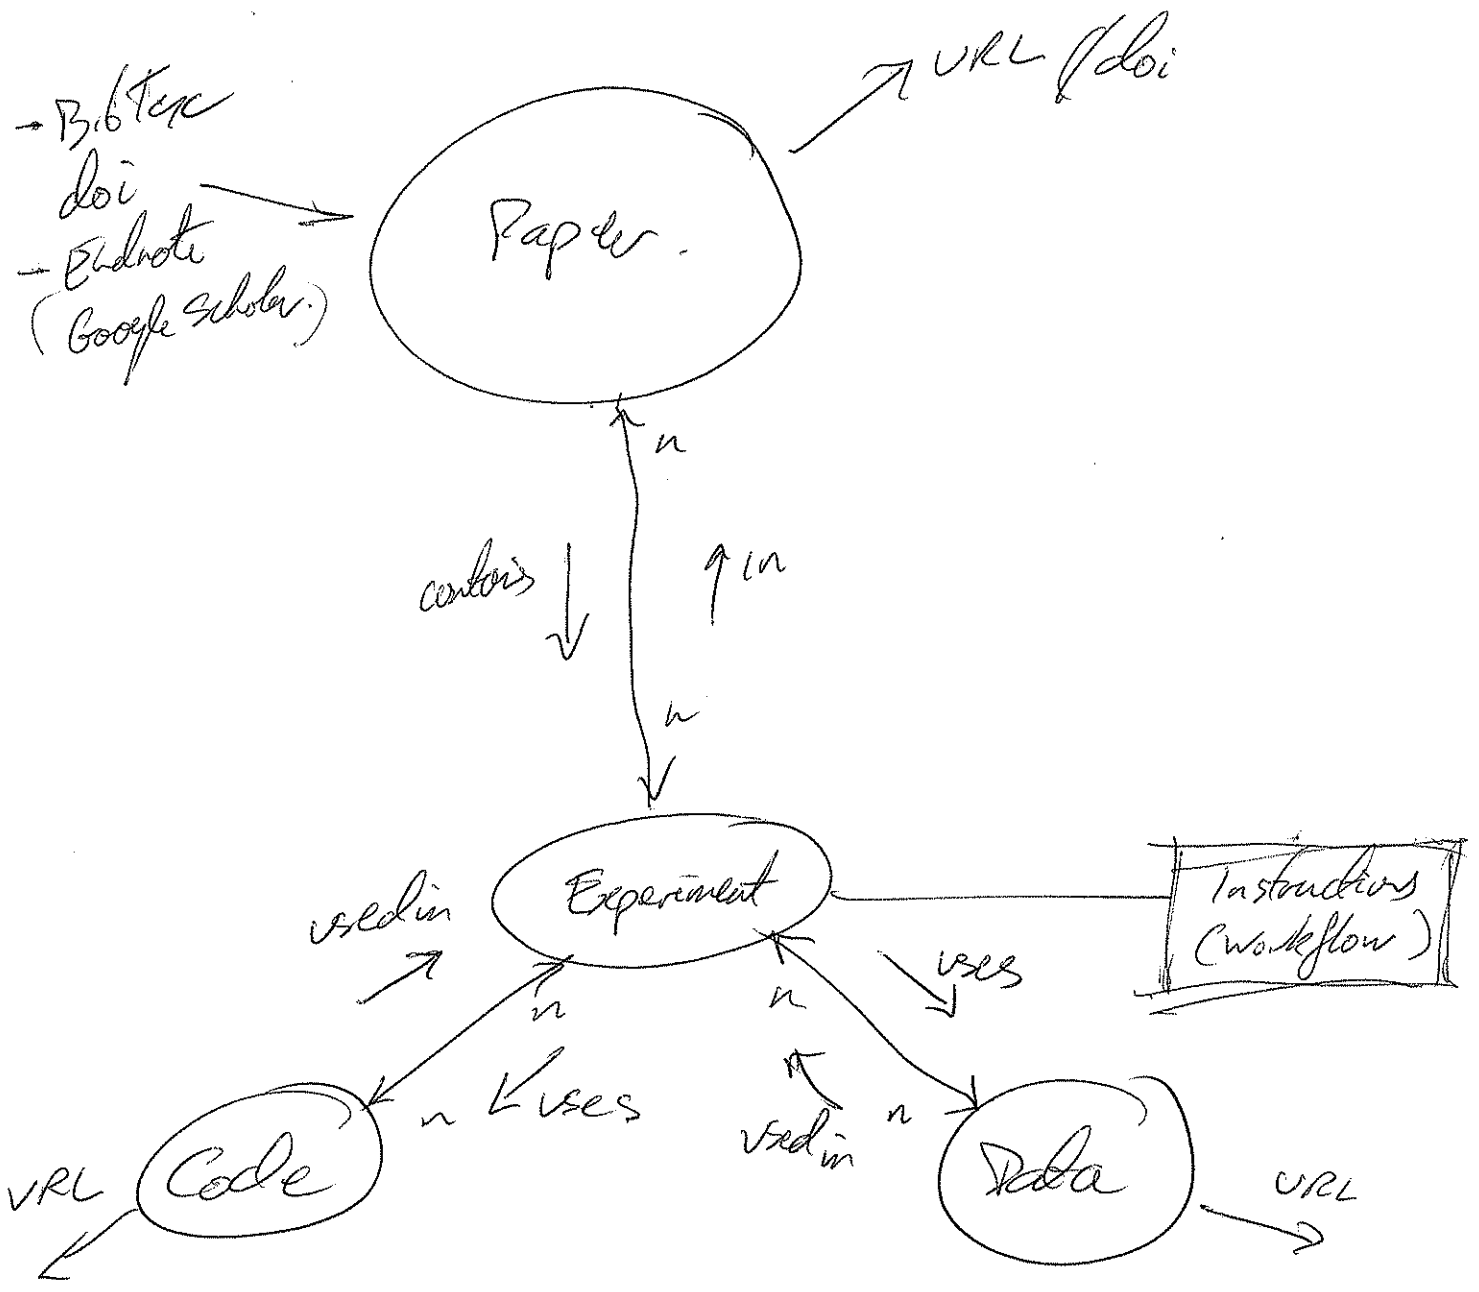 URL / doi
→ BibTex
doi
→ Endnote
(Google Scholar.)
Paper.
n
contains
in
n
Experiment
Instructions
(workflow)
used in
uses
n
n
n
uses
used in
n
Code
Data
URL
URL